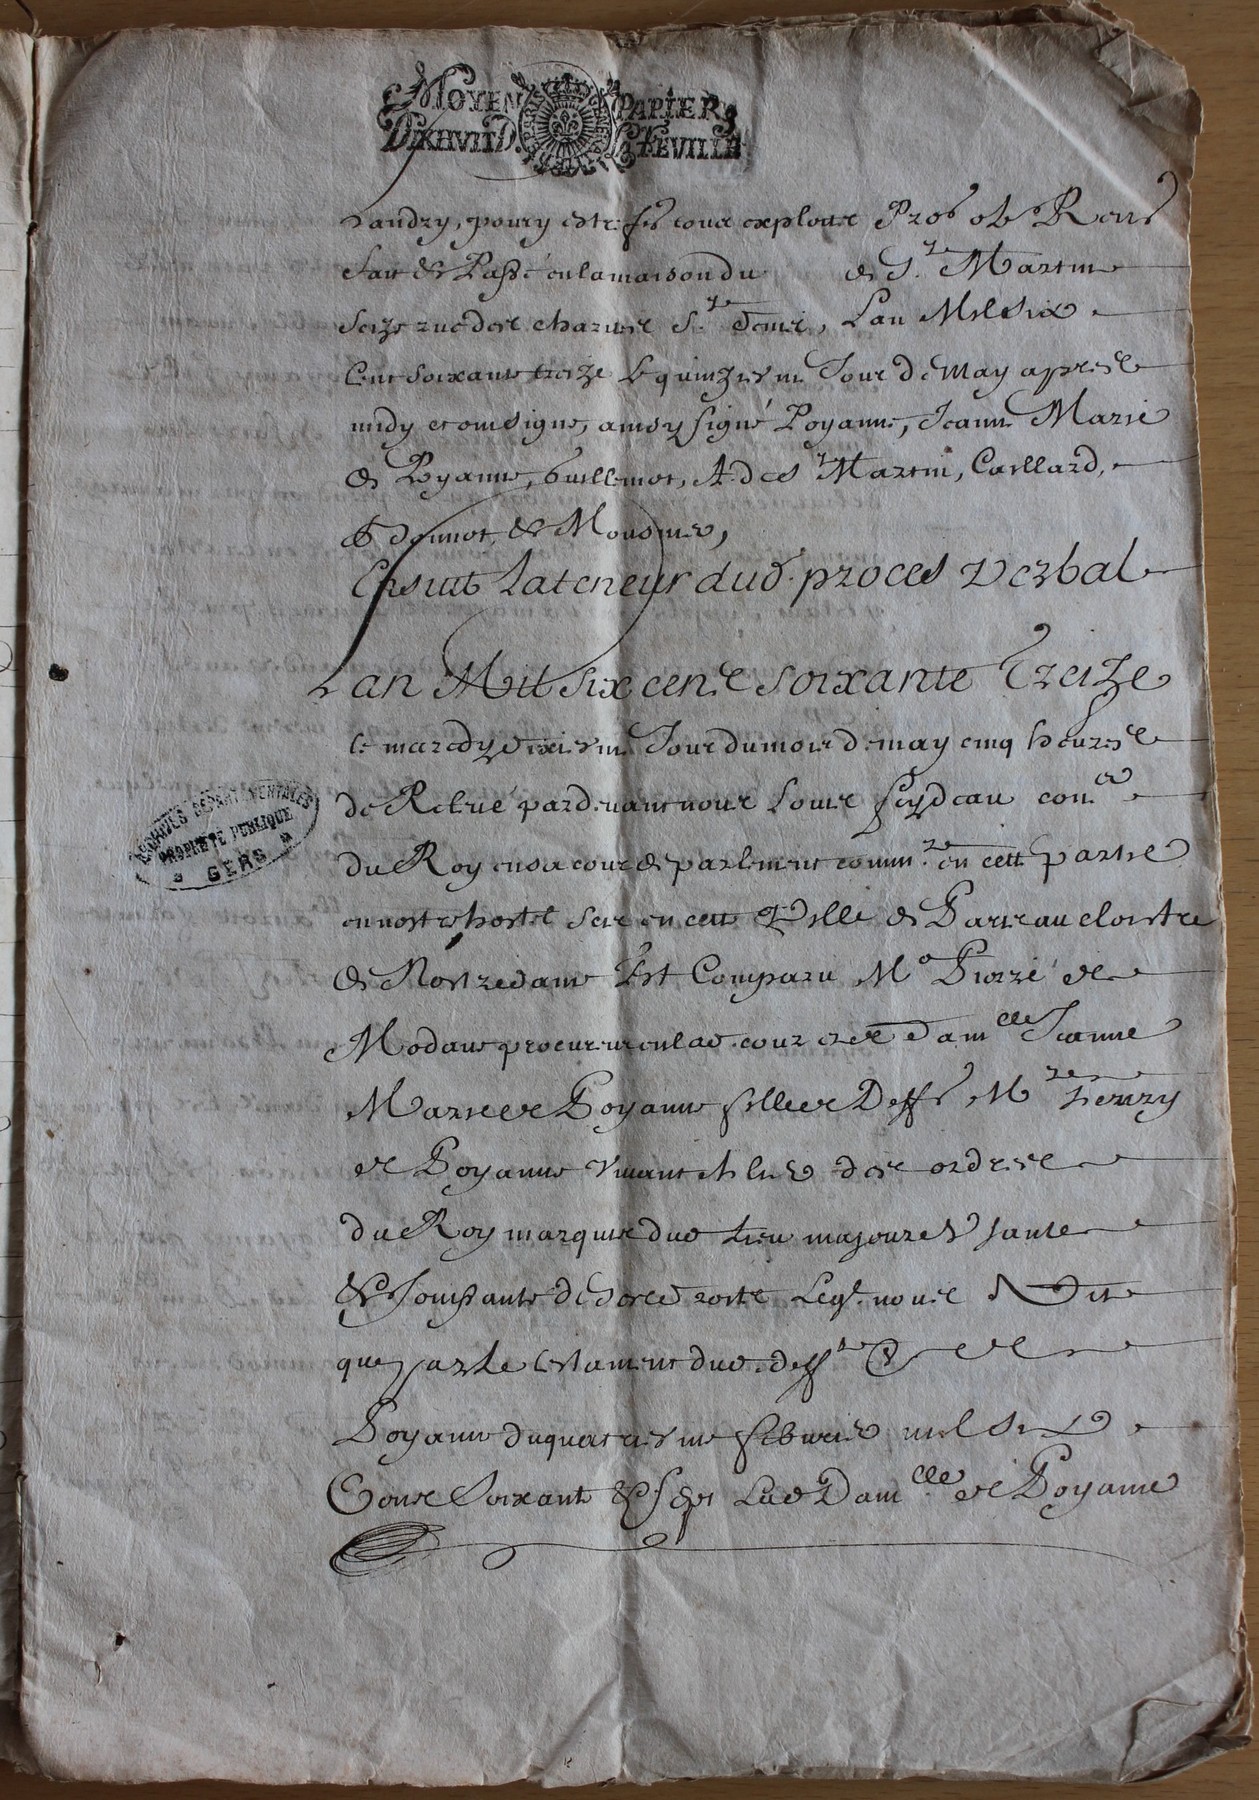 MOYEN PAPIER
DIXHUIT D. LA FEVILLE
Landry, pour y estre fes tous exploits Pro ob Ren
fait et Passé en la maison du de St Martin
seize rue des charries St Denis, Lan Mil six
cent soixante treize le quinziesme Jour de May apres
midy et ont signé, ainsy signé Poyanne, Jeanne Marie
de Poyanne, Guillemot, A. de St Martin, Caillard,
Donnot, et Mousnier,
Ensuit la teneur dud. proces verbal
Lan Mil six cent soixante Treize
le mardy dixiesme Jour du mois de may cinq heures
de Relevé pardevant nous Louis feydeau con.er
du Roy en sa cour de parlement comm.re en cette partie
en nostre hostel scis en cette Ville de Paris au cloistre
de Nostredame Est Comparu Me Pierre de
Modave procureur en lad. cour et de Dam.elle Jeanne
Marie de Poyanne fille de Deff M.re henry
de Poyanne vivant ch.lier des ordres
du Roy marquis dud lieu majeure Usante
et Jouissante de ses droits Leq.l nous a Dit
que par le testament dud. deff S.r de
Poyanne du quatriesme febvrier mil six
Cens soixante et sept Lad Dam.elle de Poyanne
ARCHIVES DEPARTEMENTALES
PROPRIÉTÉ PUBLIQUE
GERS